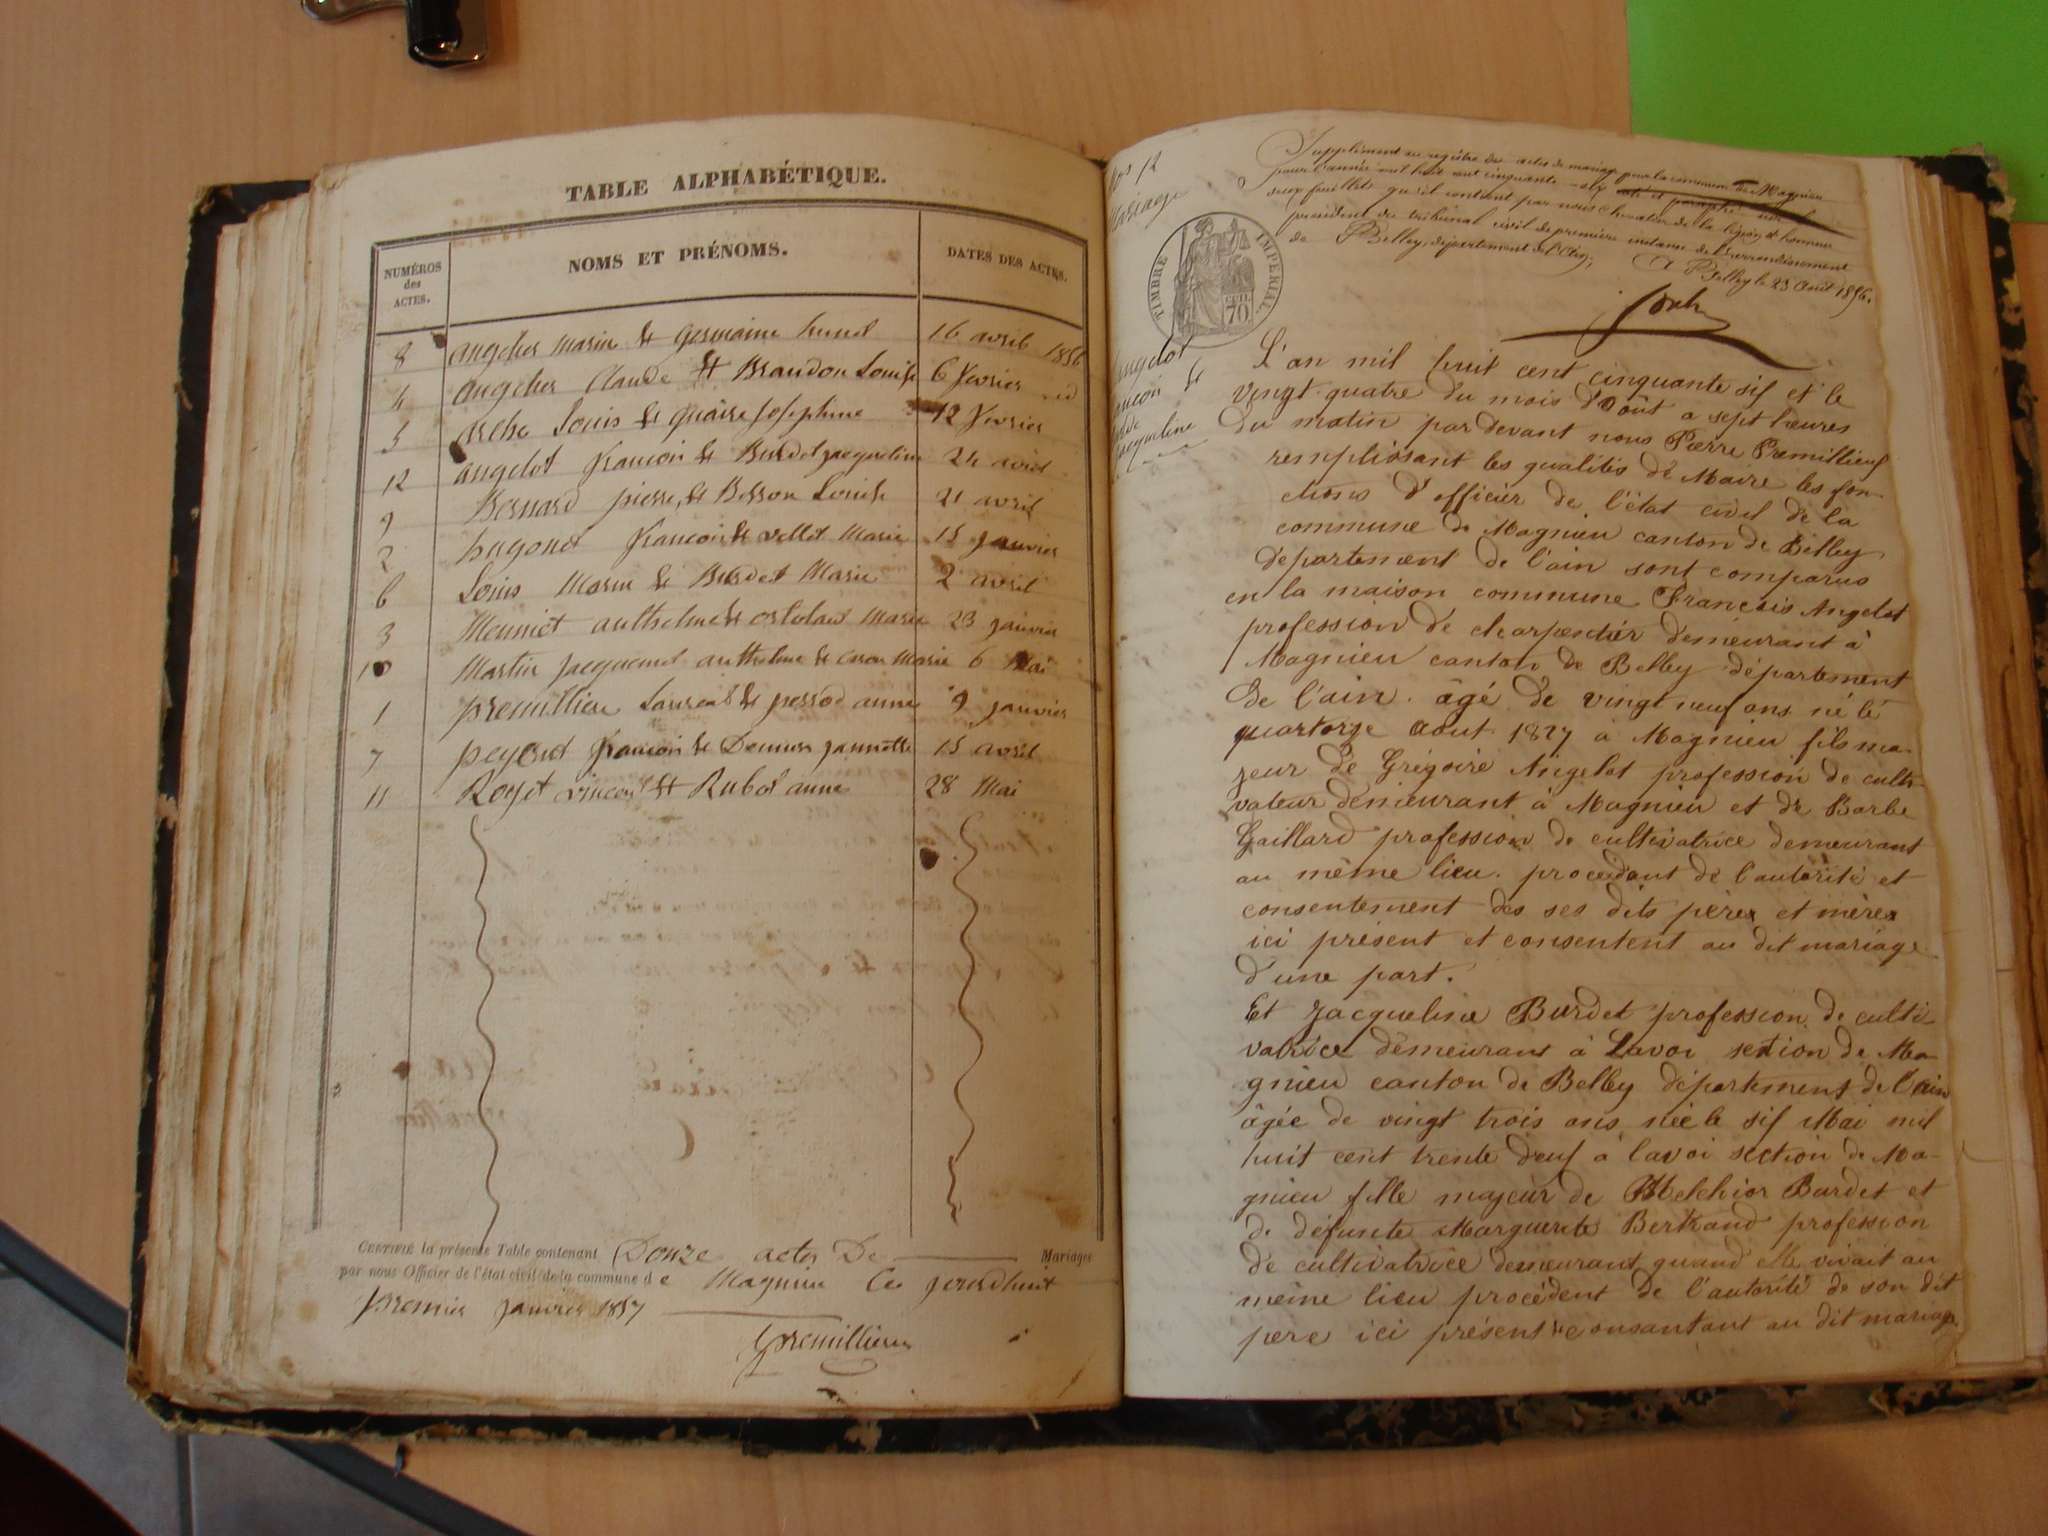 TABLE ALPHABÉTIQUE.
NUMÉROS
des
ACTES.
NOMS ET PRÉNOMS.
DATES DES ACTES.
8 angelier Marie & germaine 16 avril 1856
4 angelier Claude & Brandon Louise 6 fevrier id
5 Louis & josephine 12 fevrier
12 angelot francois & Burdet jacqueline 24
9 Bernard pierre & Besson Louise 21 avril
2 hugonet francois & vellet Marie 15 janvier
6 Louis Marie & Burdet Marie 2 avril
3 Meuniet anthelme & Marie 23 janvier
10 Martin jacquemet anthelme & Marie 6 Mai
1 premillieu Laurent & perrod anne 9 janvier
7 peyret francois & jannette 15 avril
11 Royet vincent & Rubod anne 28 Mai
CERTIFIÉ la présente Table contenant Douze actes De Mariages
par nous Officier de l'état civil de la commune de Magnieu Ce jourdhuit
premier janvier 1857
premillieu
Nos 12
Mariage
Supplément au registre des actes de mariage pour la commune de Magnieu
pour l'année mil huit cent cinquante six coté et paraphé
deux feuillets qu'il contient par nous chevalier de la légion d'honneur
président du tribunal civil de première instance de l'arrondissement
de Belley, département de l'Ain,
A Belley le 23 Août 1856.
TIMBRE IMPÉRIAL
CEN. 70
Angelot
francois &
Jacqueline
L'an mil huit cent cinquante sif et le
vingt-quatre du mois d'Oôut a sept heures
du matin par devant nous Pierre Premillieuf
remplissant les qualités de Maire les fon-
ctions d'officier de l'état civil de la
commune de Magnieu canton de Belley
departement de l'ain sont comparus
en la maison commune François Angelot
profession de charpentier demeurant à
Magnieu canton de Belley département
de l'ain. âgé de vingt neuf ans né le
quartorze aout 1827 a Magnieu fils ma-
jeur de Grégoire Angelot profession de culti-
vateur demeurant à Magnieu et de Barbe
Gaillard profession de cultivatrice demeurant
au même lieu. procédant de l'autorité et
consentement des ses dits père et mère
ici présent et consentent au dit mariage
d'une part.
Et Jacqueline Burdet profession de culti-
vatrice demeurant à Lavoi section de Ma-
gnieu canton de Belley département de l'ain
âgée de vingt trois ans née le sif Mai mil
huit cent trente deuf a lavoi section de Ma-
gnieu fille majeur de Melchior Burdet et
de défunte Marguerite Bertrand profession
de cultivatrice demeurant quand elle vivait au
même lieu procédent de l'autorité de son dit
pere ici présent & consantant au dit mariage